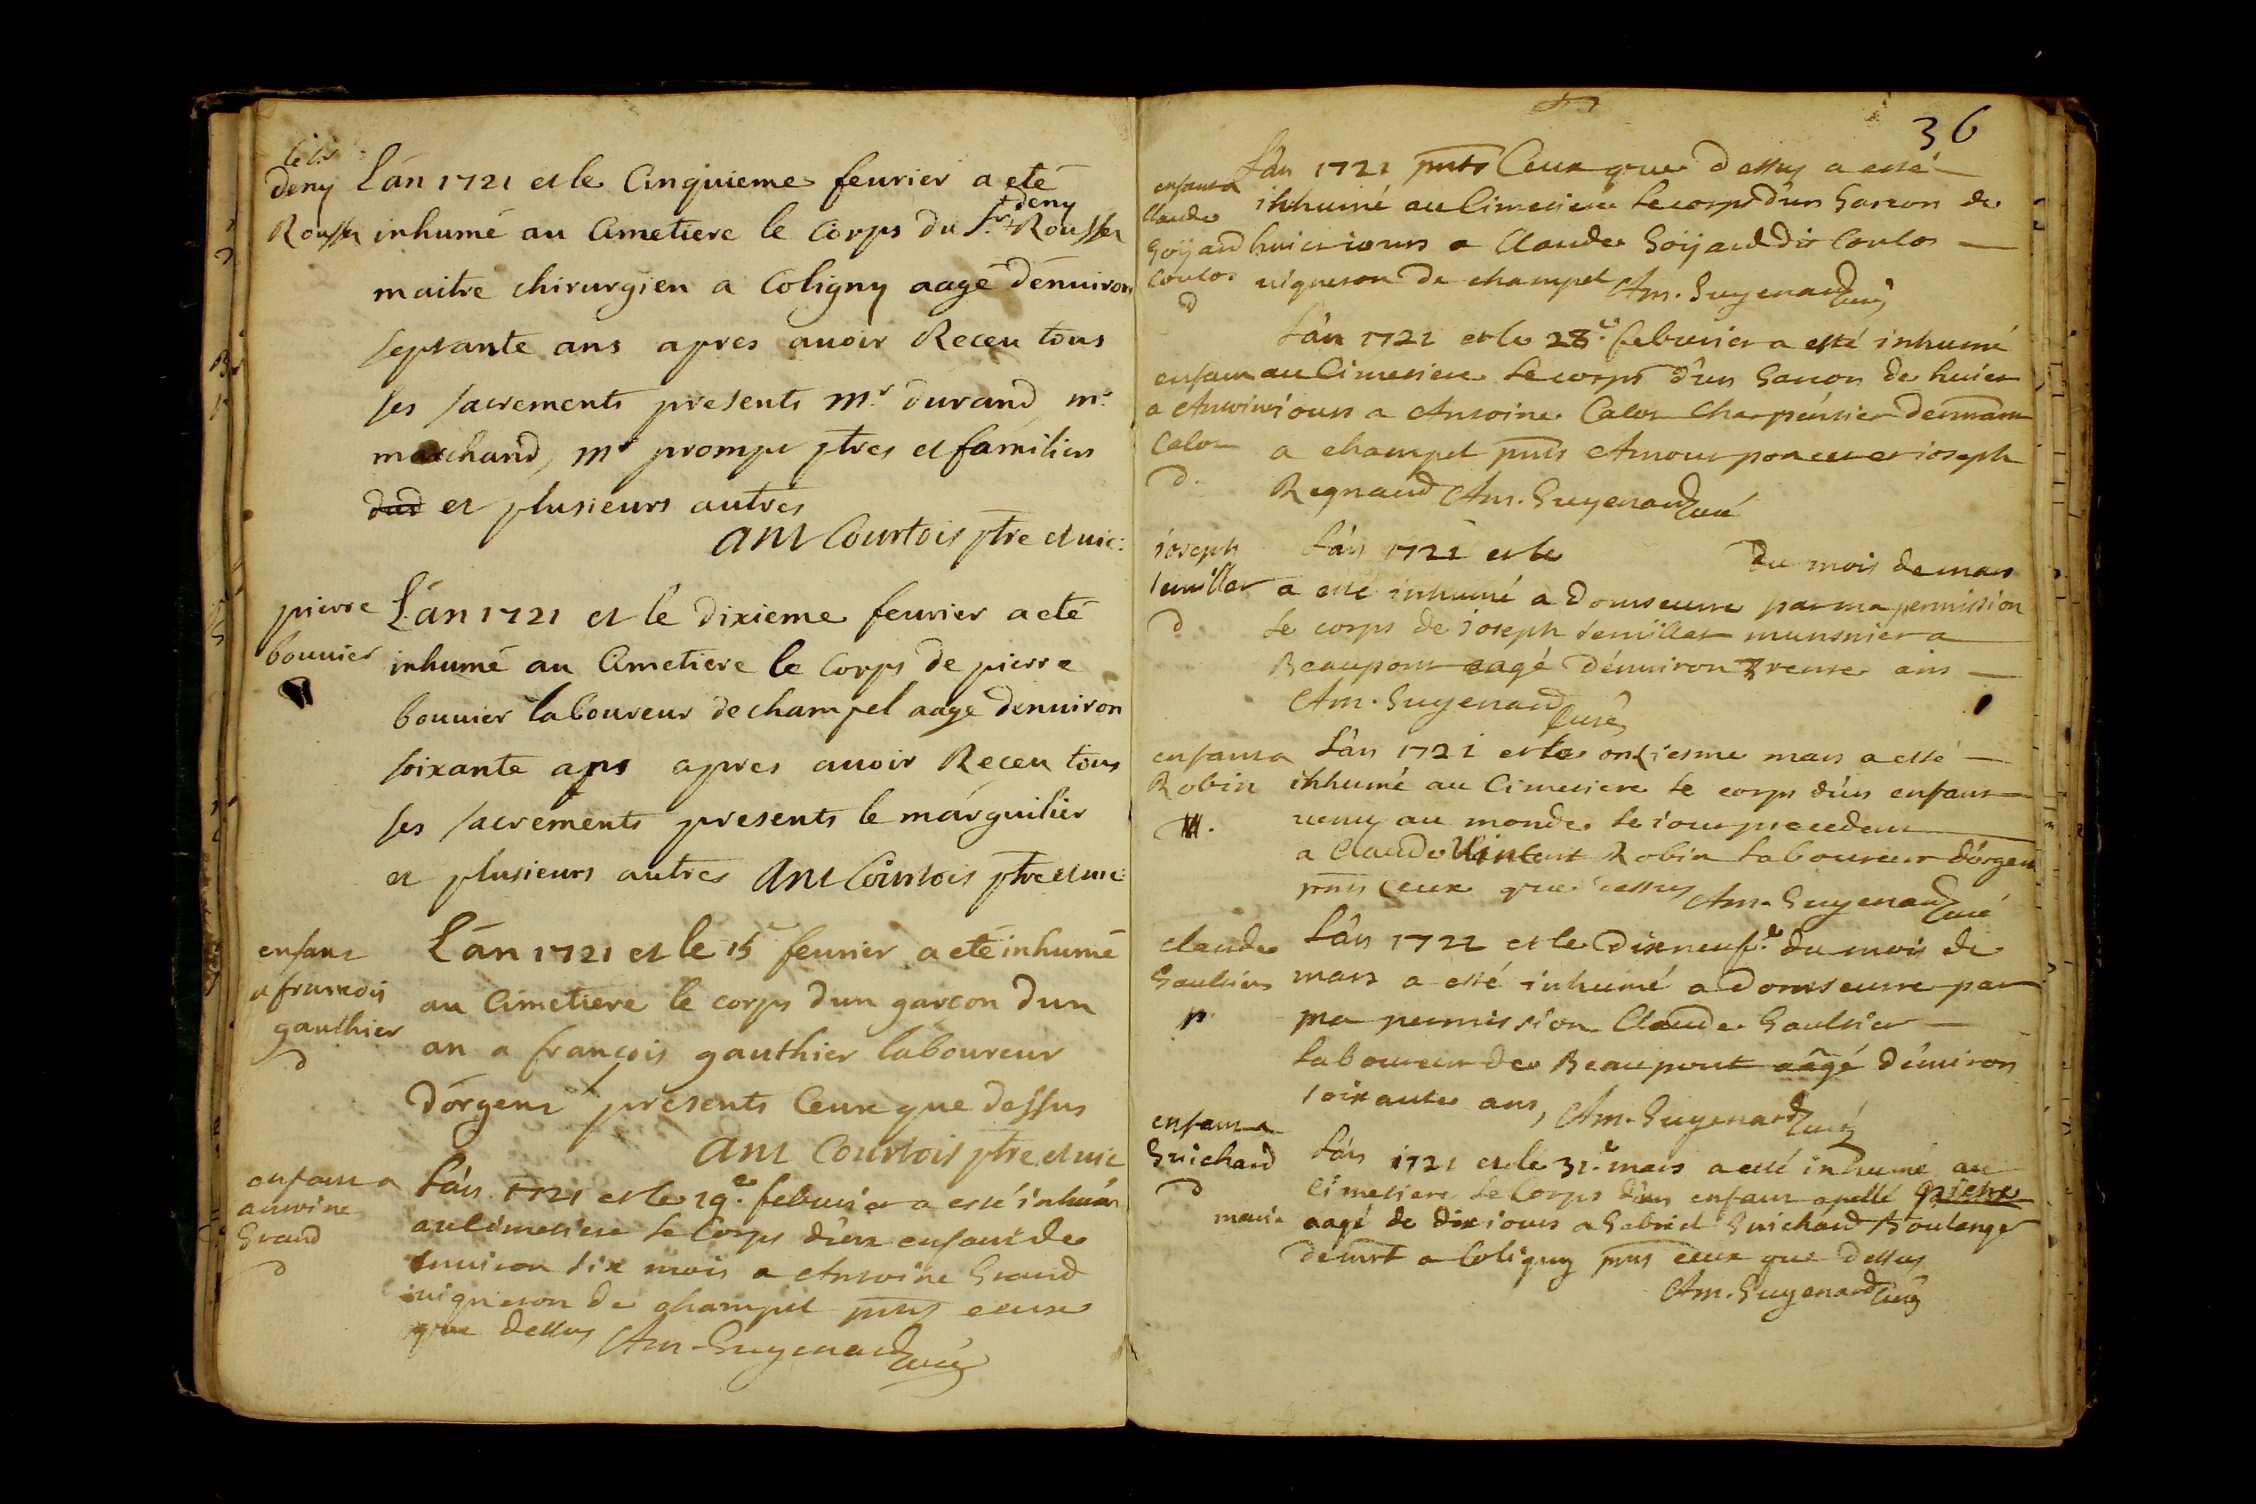 deny
Rousser
Lán 1721 et le Cinquieme feurier a eté
inhumé au Cimetiere le Corps du Sr. deny Rousser
maitre chirurgien a Coligny aagé dénuiron
septante ans apres auoir Receu tous
ses sacrements presents mr. durand mr.
marchand, mr promps ptres et familiers
et plusieurs autres
Am Courtois ptre et uic:
pierre
bouuier
Lán 1721 et le dixieme feurier a eté
inhumé au Cimetiere le Corps de pierre
bouuier laboureur de champel aagé denuiron
soixante ans apres auoir Receu tous
ses sacrements presents le marguilier
et plusieurs autres Am Courtois ptre et uic:
enfant
a francois
gauthier
d
Lán 1721 et le 15e feurier a eté inhumé
au Cimetiere le corps dun garcon dun
an a françois gauthier laboureur
dórgent presents Ceux que dessus
Am Courtois ptre et uic
enfant a
antoine
Grand
d
Lán 1721 et le 19e. feburier a esté inhumé
au Cimetiere le Corps dún enfant de
enuiron six mois a Antoine Grand
uigneron de champel pnts ceux
que dessus Am. Guyenard Curé
36
enfant a
Claude
Goÿard
Coulos
d
Lán 1721 pnts Ceux que dessus a esté
inhumé au Cimetiere le corps dún Garcon de
huict iours a Claude Goÿard dit Coulos
uigneron de champel Am. Guyenard Curé
enfant
a Antoine
Calos
d.
Lán 1721 et le 28e. feburier a esté inhumé
au Cimetiere le corps dún Garcon de huict
iours a Antoine Calos Charpentier demurant
a champel pnts Amour et ioseph
Regnaud Am. Guyenard Curé
ioseph
d
Lán 1721 et le du mois de mars
a esté inhumé a Domseurre par ma permission
le corps de ioseph munsnier a
Beaupont aagé dénuiron trente ans
Am. Guyenard Curé
enfant a
Robin
Lán 1721 et le onziesme mars a esté
inhumé au Cimetiere le corps dún enfant
uenu au monde le iour precedent
a Claude Vincent Robin laboureur dórgent
pnts Ceux que dessus Am. Guyenard Curé
claude
Gaultier
p.
Lán 1721 et le dixneufe. du mois de
mars a esté inhumé a Domseurre par
ma permission Claude Gaultier
laboureur de Beaupont aagé dénuiron
soixante ans, Am. Guyenard Curé
enfant a
Guichard
d
Lán 1721 et le 31e. mars a esté inhumé au
Cimetiere le Corps dún enfant apellé pierre
marie aagé de dix iours a Gabriel Guichard Boulanger
demrt a Coligny pnts ceux que dessus
Am. Guyenard Curé